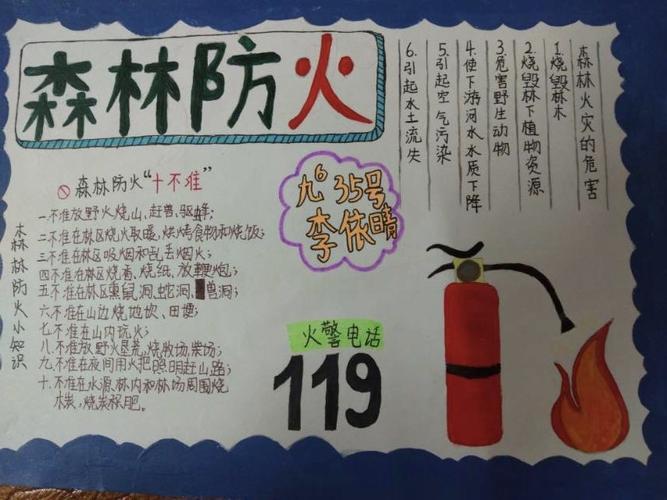 森林防火
森林火灾的危害
1.烧毁林木
2.烧毁林下植物资源
3.危害野生动物
4.使下游河水水质下降
5.引起空气污染
6.引起水土流失
九6 35号
李依晴
森林防火"十不准"
森林防火小知识
一不准放野火烧山,赶兽、驱蜂;
二不准在林区烧火取暖、烘烤食物和烧饭;
三不准在林区吸烟和乱丢烟火;
四不准在林区烧香、烧纸、放鞭炮;
五不准在林区熏鼠洞、蛇洞、兽洞;
六不准在山边烧地坎、田埂;
七不准在山内玩火;
八不准放野火垦荒,烧牧场,柴场;
九不准在夜间用火把照明赶山路;
十、不准在水源林内和林场周围烧
木炭,烧炭积肥。
火警电话
119